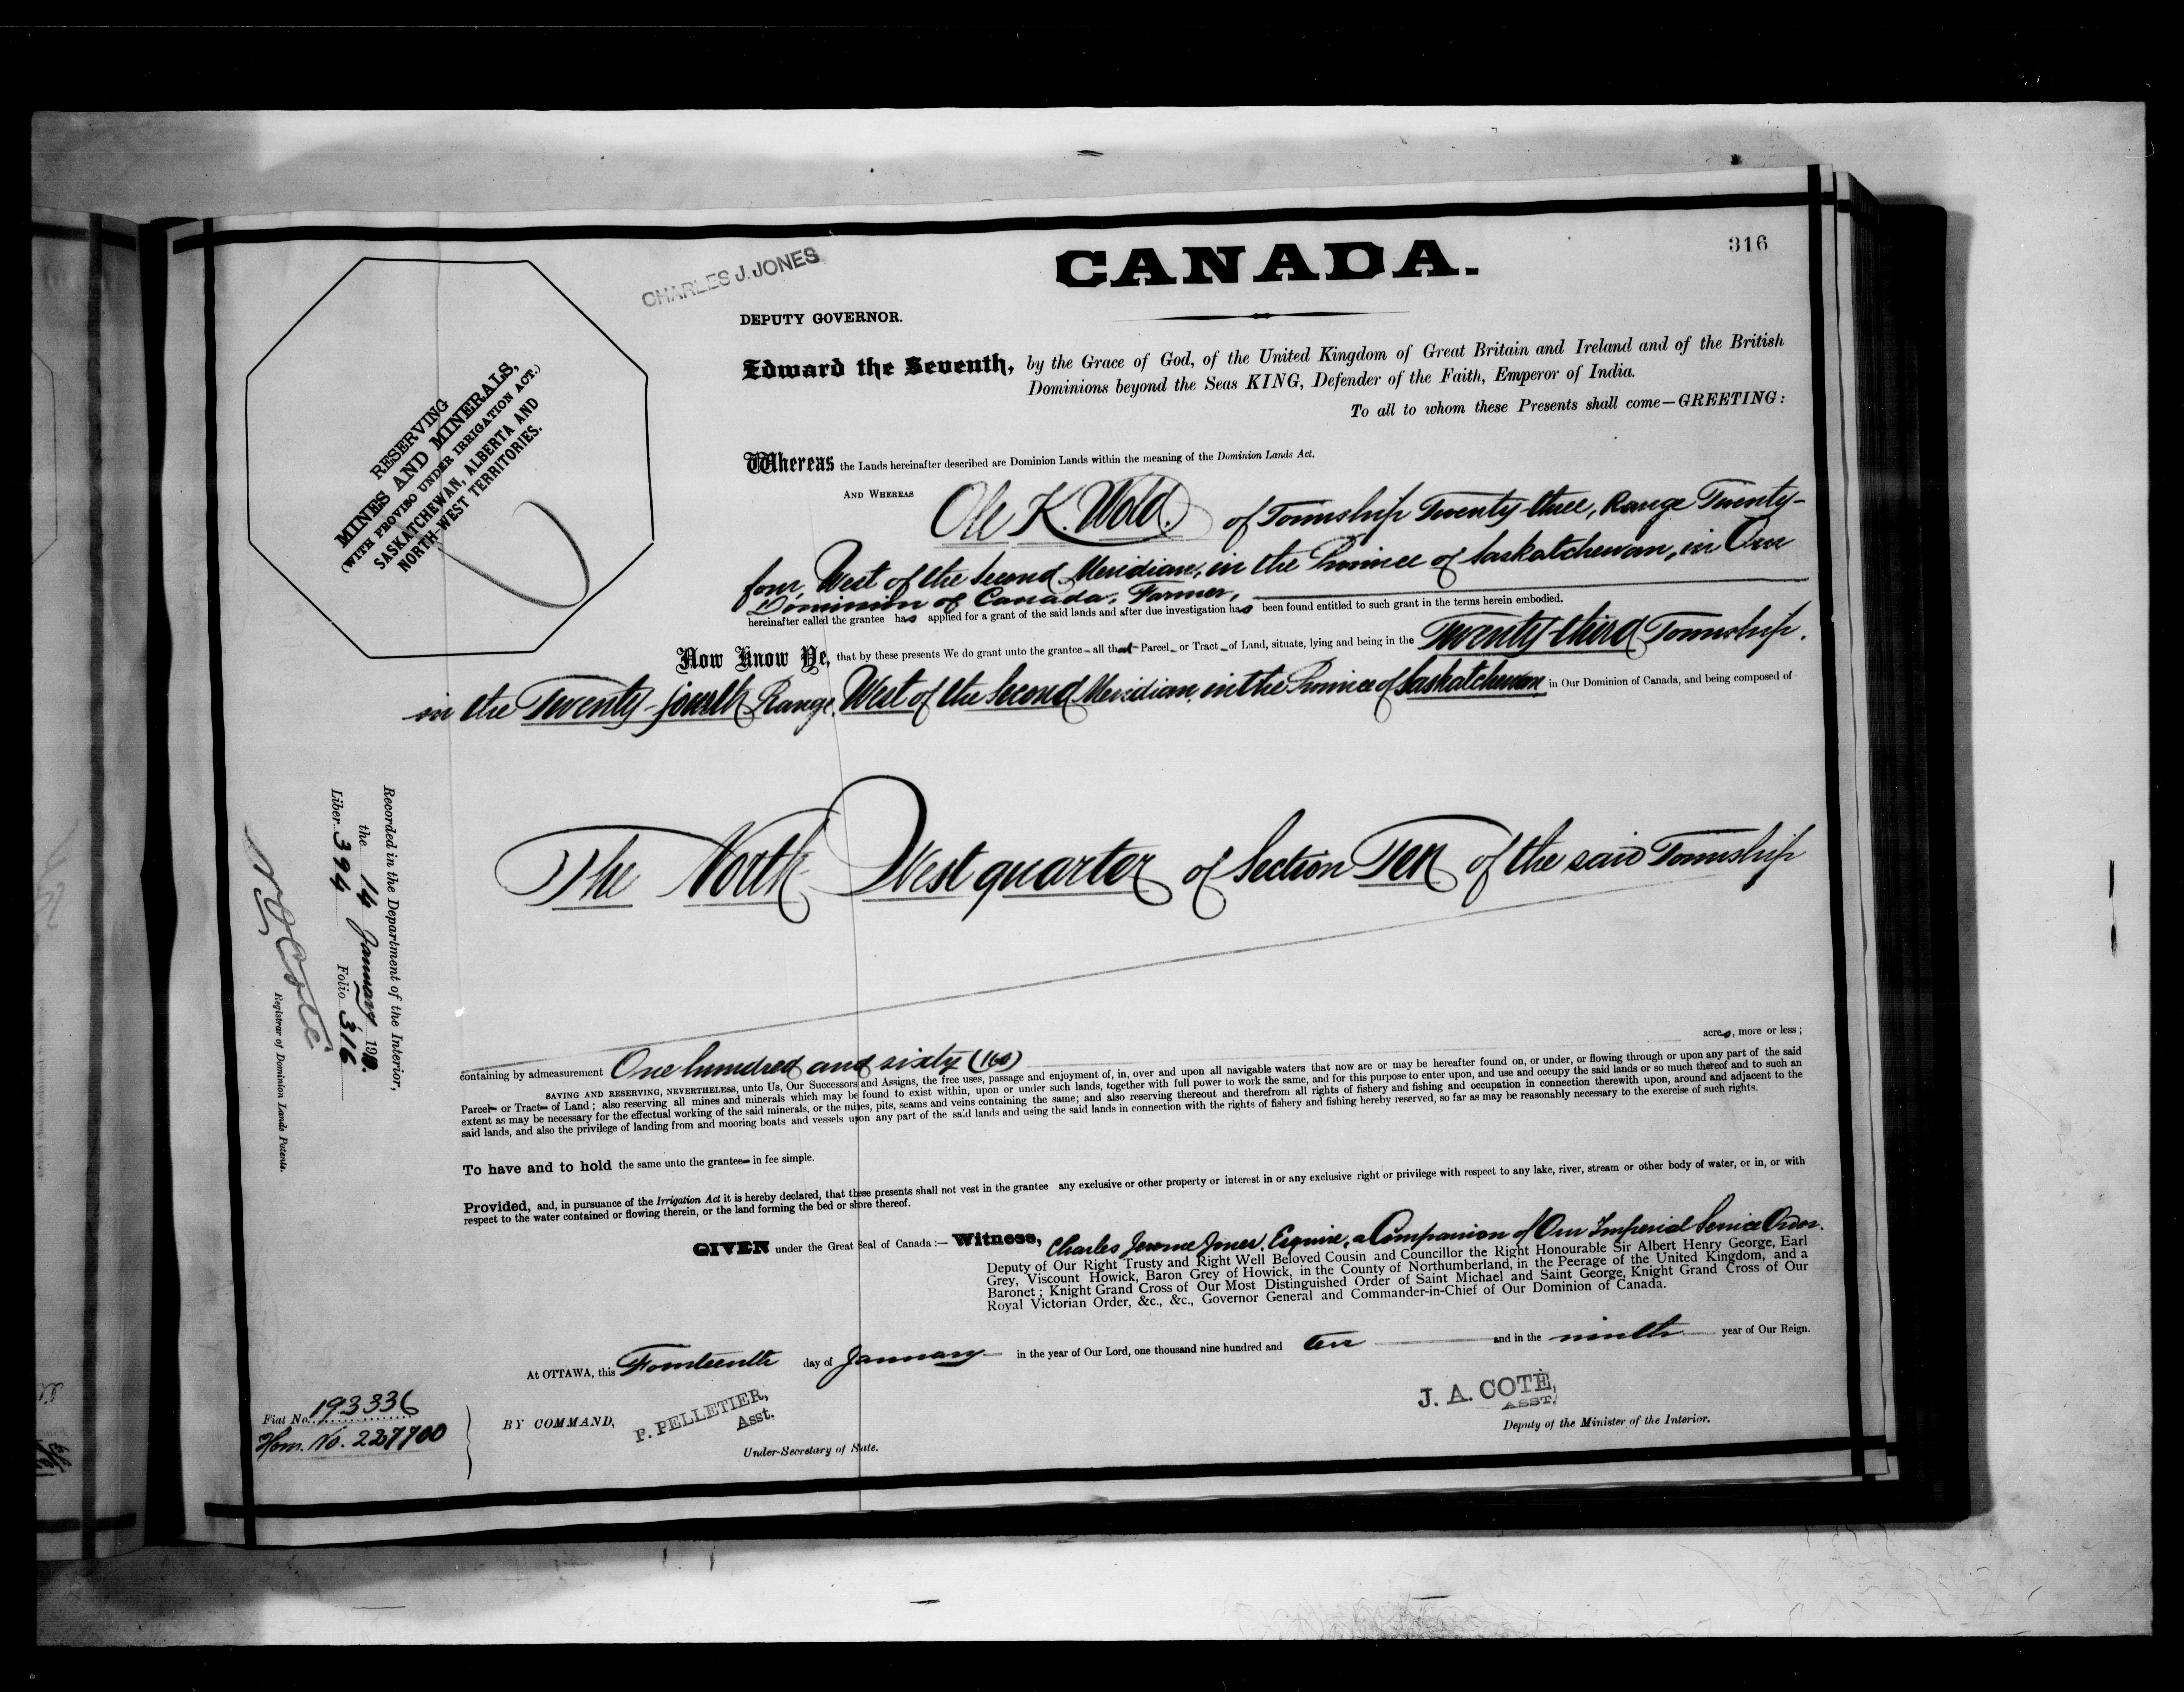 316
CANADA.
CHARLES J. JONES
DEPUTY GOVERNOR.
RESERVING
MINES AND MINERALS,
(WITH PROVISO UNDER IRRIGATION ACT.)
SASKATCHEWAN, ALBERTA AND
NORTH-WEST TERRITORIES.
Edward the Seventh, by the Grace of God, of the United Kingdom of Great Britain and Ireland and of the British
Dominions beyond the Seas KING, Defender of the Faith, Emperor of India.
To all to whom these Presents shall come—GREETING:
Whereas the Lands hereinafter described are Dominion Lands within the meaning of the Dominion Lands Act.
AND WHEREAS Ole K. Wold. of Township Twenty-three, Range Twenty-
four, West of the Second Meridian, in the Province of Saskatchewan, in Our
Dominion of Canada, Farmer,
hereinafter called the grantee has applied for a grant of the said lands and after due investigation has been found entitled to such grant in the terms herein embodied.
Now Know Ye, that by these presents We do grant unto the grantee - all that Parcel or Tract of Land, situate, lying and being in the Twenty-third Township.
in the Twenty-fourth Range, West of the Second Meridian, in the Province of Saskatchewan in Our Dominion of Canada, and being composed of
The North West quarter of Section Ten of the said Township
acres, more or less;
containing by admeasurement One hundred and sixty (160)
SAVING AND RESERVING, NEVERTHELESS, unto Us, Our Successors and Assigns, the free uses, passage and enjoyment of, in, over and upon all navigable waters that now are or may be hereafter found on, or under, or flowing through or upon any part of the said
Parcel or Tract of Land; also reserving all mines and minerals which may be found to exist within, upon or under such lands, together with full power to work the same, and for this purpose to enter upon, and use and occupy the said lands or so much thereof and to such an
extent as may be necessary for the effectual working of the said minerals, or the mines, pits, seams and veins containing the same; and also reserving thereout and therefrom all rights of fishery and fishing and occupation in connection therewith upon, around and adjacent to the
said lands, and also the privilege of landing from and mooring boats and vessels upon any part of the said lands and using the said lands in connection with the rights of fishery and fishing hereby reserved, so far as may be reasonably necessary to the exercise of such rights.
To have and to hold the same unto the grantee in fee simple.
Provided, and, in pursuance of the Irrigation Act it is hereby declared, that these presents shall not vest in the grantee any exclusive or other property or interest in or any exclusive right or privilege with respect to any lake, river, stream or other body of water, or in, or with
respect to the water contained or flowing therein, or the land forming the bed or shore thereof.
GIVEN under the Great Seal of Canada:— Witness, Charles Jerome Jones, Esquire, a Companion of Our Imperial Service Order.
Deputy of Our Right Trusty and Right Well Beloved Cousin and Councillor the Right Honourable Sir Albert Henry George, Earl
Grey, Viscount Howick, Baron Grey of Howick, in the County of Northumberland, in the Peerage of the United Kingdom, and a
Baronet; Knight Grand Cross of Our Most Distinguished Order of Saint Michael and Saint George, Knight Grand Cross of Our
Royal Victorian Order, &c., &c., Governor General and Commander-in-Chief of Our Dominion of Canada.
At OTTAWA, this Fourteenth day of January in the year of Our Lord, one thousand nine hundred and ten and in the ninth year of Our Reign.
BY COMMAND,
P. PELLETIER,
Asst.
Under-Secretary of State.
J. A. COTÉ,
ASST.
Deputy of the Minister of the Interior.
Fiat No. 193336
Hom. No. 227700
Recorded in the Department of the Interior,
the 14 January 1910.
Liber 394 Folio 316
N O Coté
Registrar of Dominion Lands Patents.